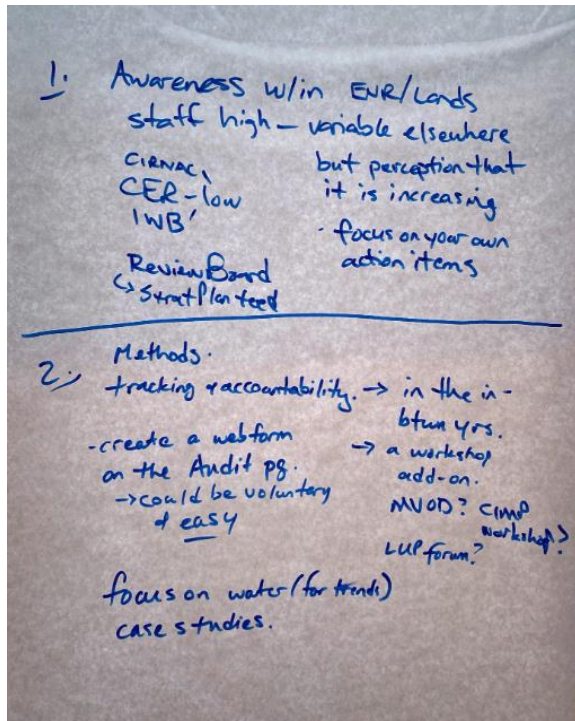 1. Awareness w/in ENR/Lands
staff high - variable elsewhere
CIRNAC,
CER - low
IWB'
but perception that
it is increasing
· focus on your own
action items
Review Board
↳ Strat Plan feed
2. Methods.
tracking & accountability. → in the in-
btwn yrs.
- create a webform
on the Audit pg.
→ could be voluntary
& easy
→ a workshop
add-on.
MVOD? CIMP
workshop?
LUP forum?
focus on water (for trends)
case studies.